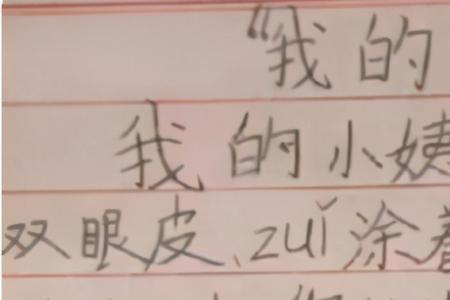 “我的
我的小姨
双眼皮、zuǐ涂着